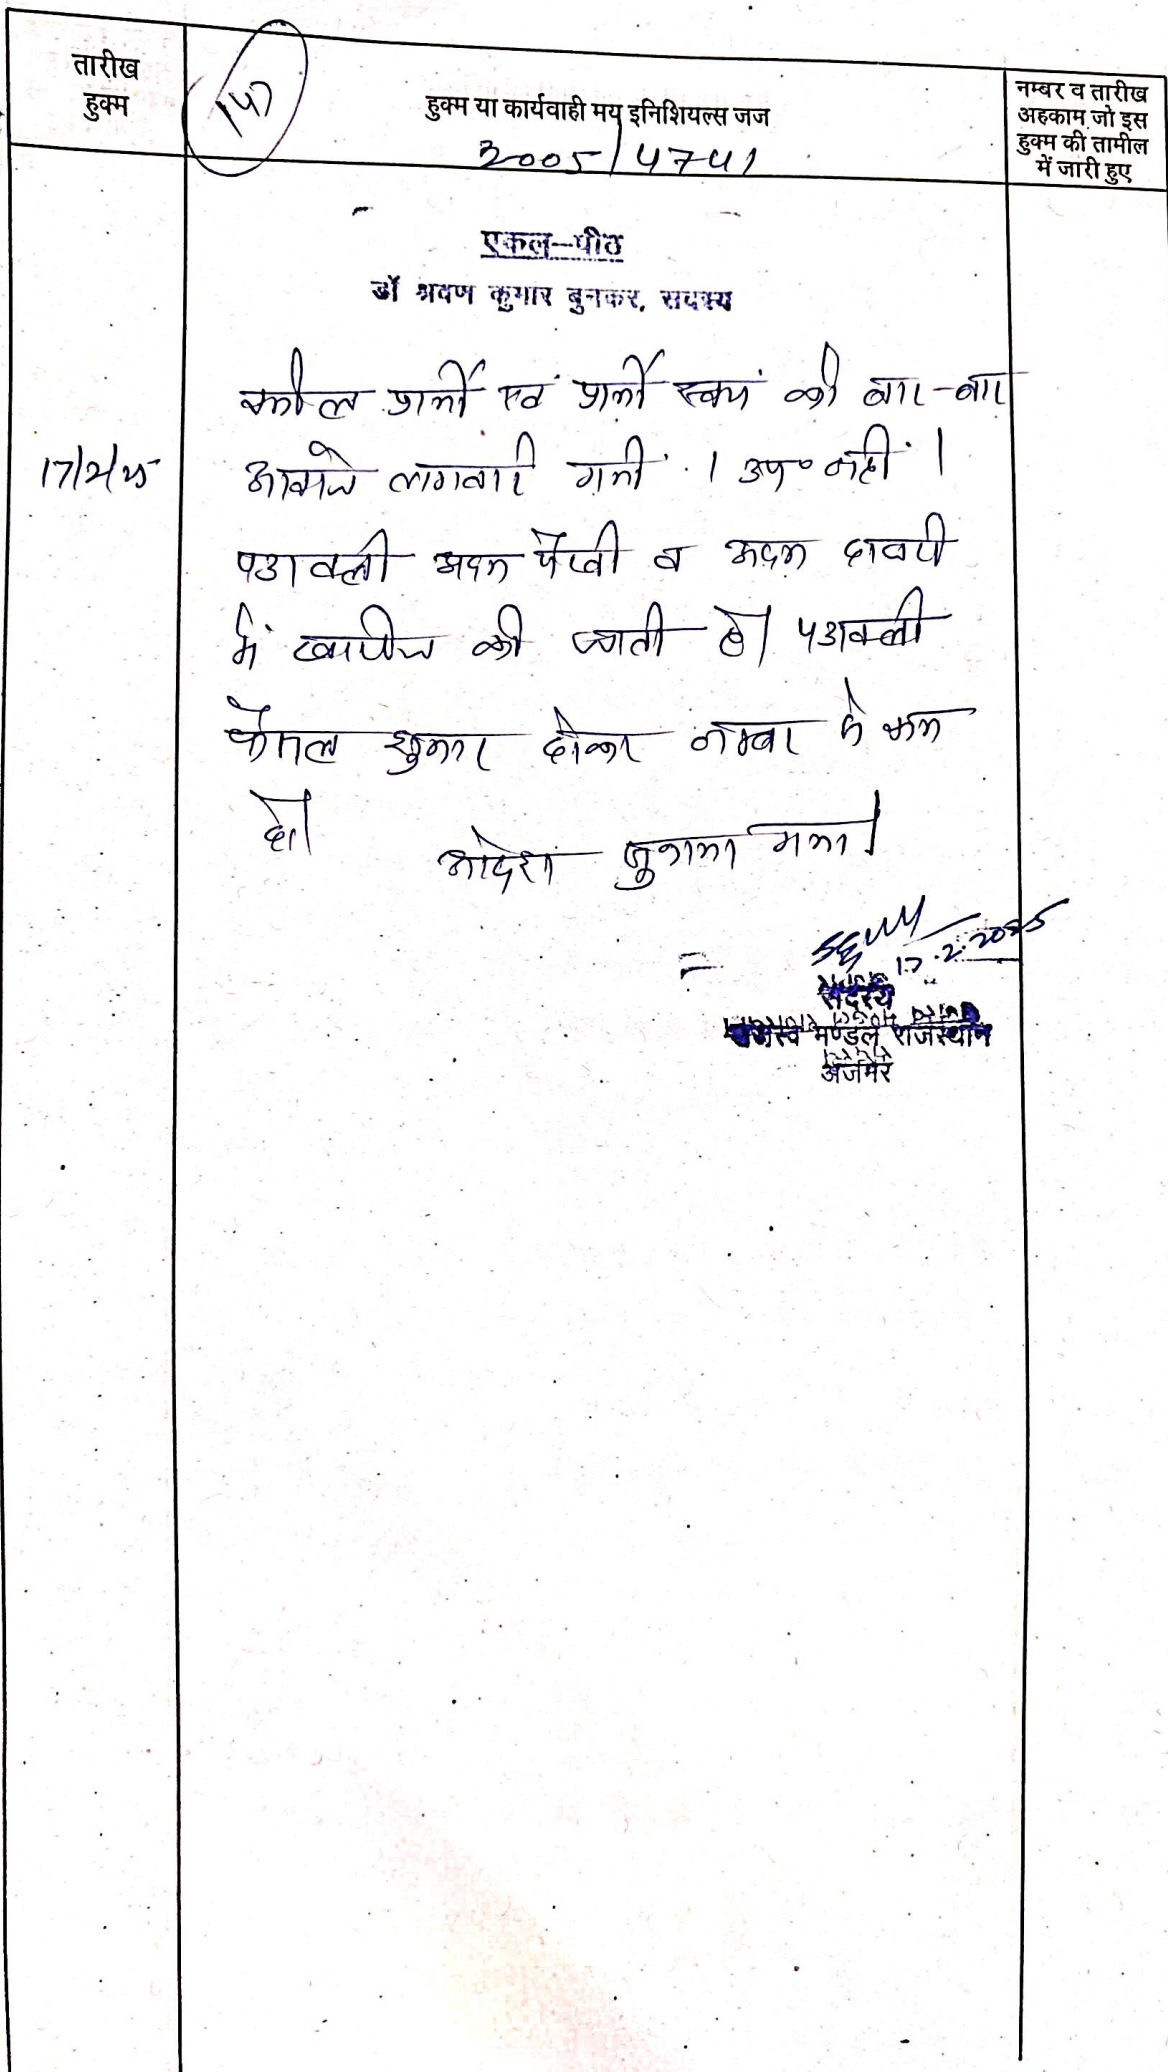 तारीख
हुक्म
हुक्म या कार्यवाही मय इनिशियल्स जज
नम्बर व तारीख
अहकाम जो इस
हुक्म की तामील
में जारी हुए
2005/4741
एकल-पीठ
डॉ श्रवण कुमार बुनकर, सदस्य
वकील प्रार्थी एवं प्रार्थी स्वयं को बार-बार
17/2/25
आवाजें लगवाई गयी । उप० नहीं ।
पत्रावली अदम पैरवी व अदम हाजरी
में खारीज की जाती है। पत्रावली
फैसल शुमार होकर नम्बर से कम
हो।
आदेश सुनाया गया।
17.2.2025
सदस्य
राजस्व मण्डल राजस्थान
अजमेर